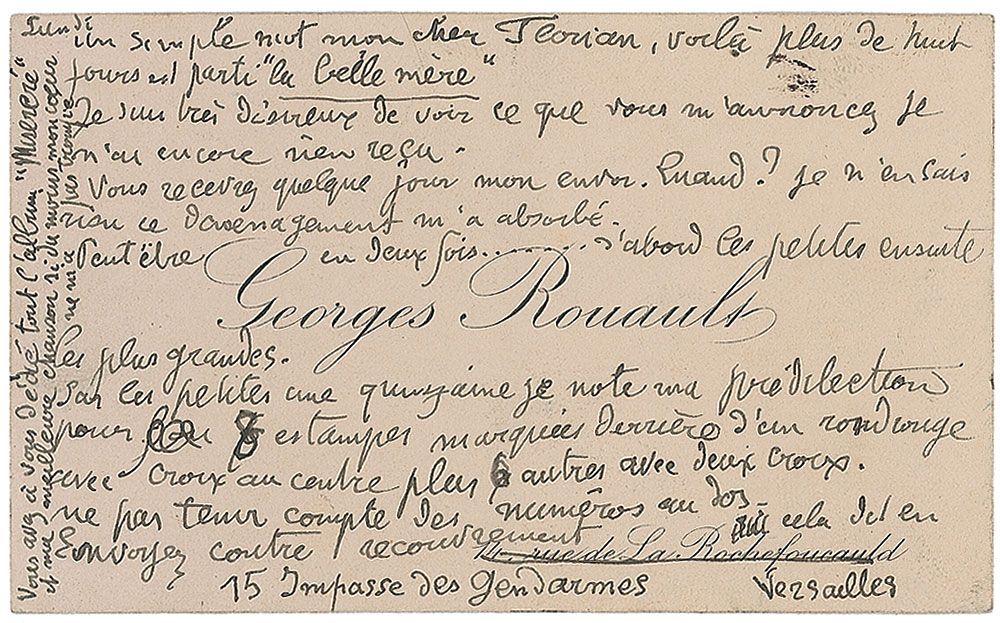 Lundi
Un simple mot mon cher Florian, voilà plus de huit
jours est parti "la belle mère"
Je suis très désireux de voir ce que vous m'annoncez je
n'ai encore rien reçu.
Vous recevrez quelque jour mon envoi. Quand? je n'en sais
rien ce déménagement m'a absorbé.
Peut être en deux fois......... d'abord les petites ensuite
Georges Rouault
les plus grandes.
Sur les petites une quinzaine je note ma prédilection
pour 8 estampes marquées derrière d'un rond rouge
avec croix au centre plus 6 autres avec deux croix.
ne pas tenir compte des numéros au dos cela dit en
Envoyez contre recouvrement
rue de La Rochefoucauld
15 Impasse des Gendarmes Versailles
Vous avez dédié tout l'album "Miserere"
et ma meilleure chanson si du moins mon cœur
ne m'a pas trompé